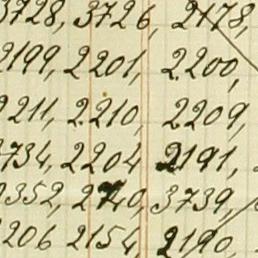 3728, 3726, 2178,
2199, 2201, 2200,
2211, 2210, 2209,
3734, 2204 2191,
2352, 2240, 3739,
2206 2154, 2190,